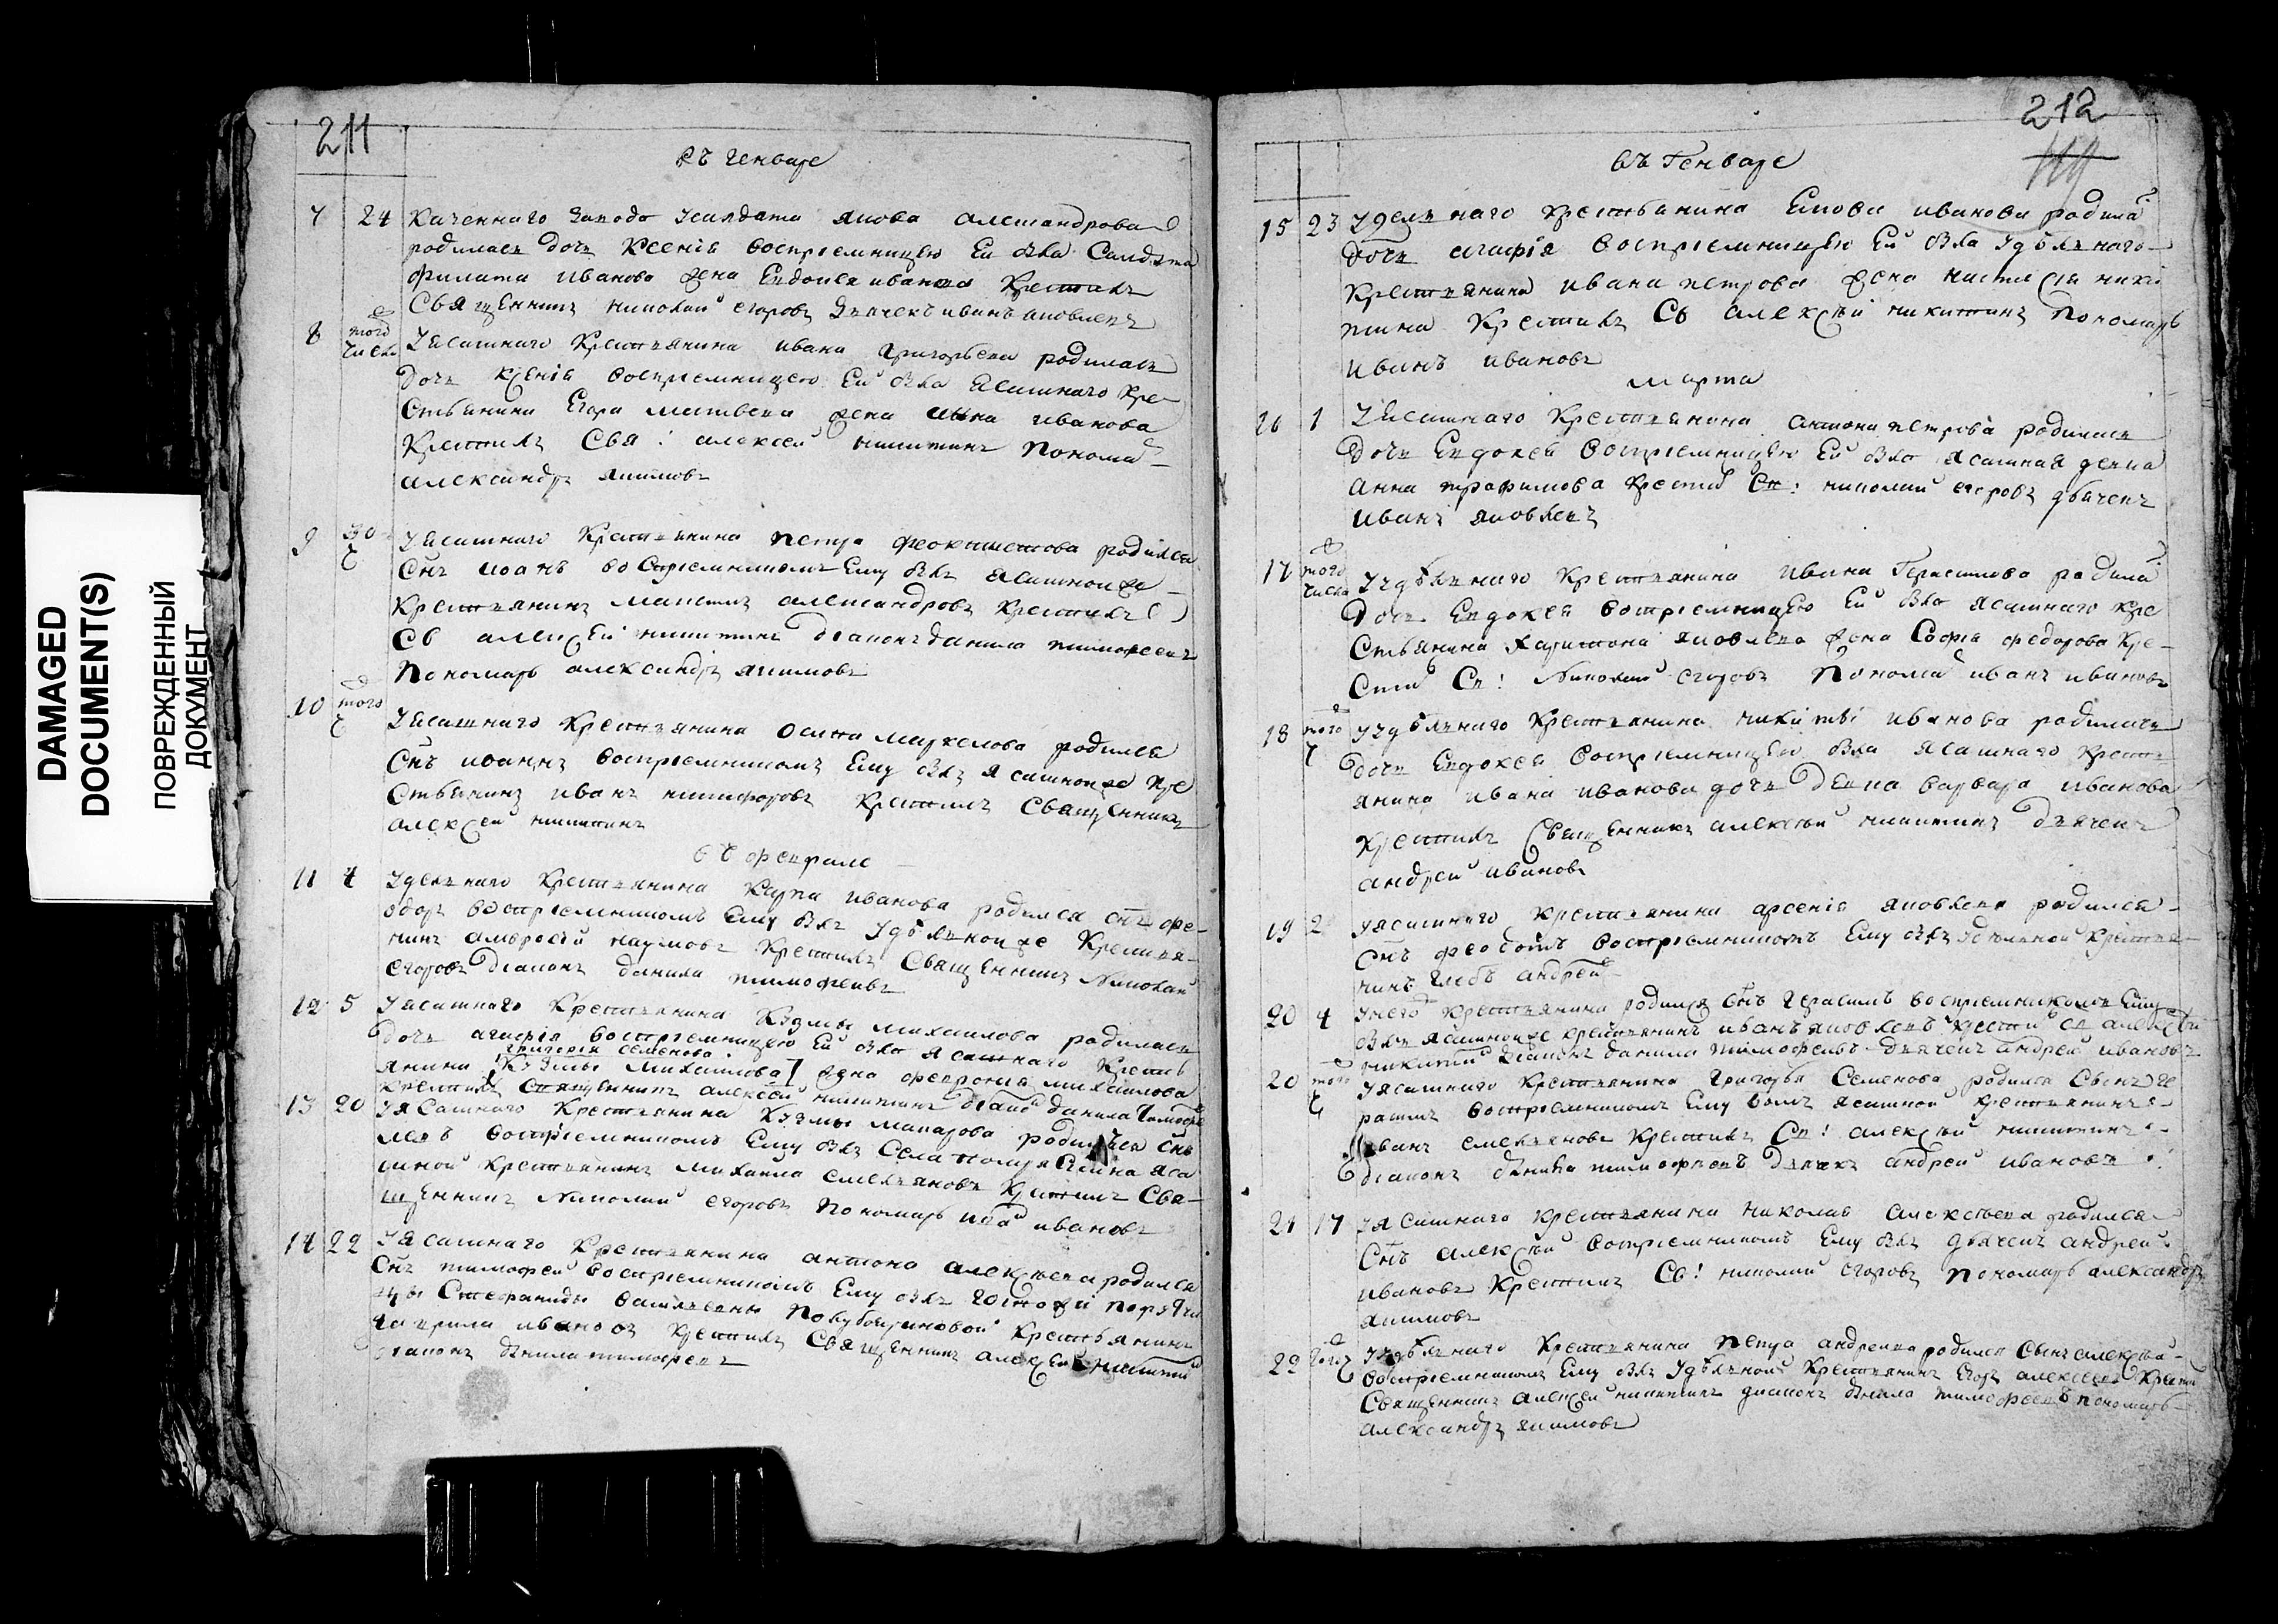 DAMAGED
DOCUMENT(S)
ПОВРЕЖДЕННЫЙ
ДОКУМЕНТ
211
въ генваре
7 24 Казеннаго завода усалдата якова александрова
родилась дочь Ксенія воспріемницею Ей была Салдата
филата иванова жена Евдокея иванова Крестилъ
Священникъ николай егоровъ дьячекъ иванъ яковлевъ
8 того числа Уясашнаго Крестьянина ивана григорьева родилась
дочь ксенія воспріемницею Ей была Ясашнаго Кре-
стьянина Егора матвеева жена иванова
Крестилъ Свя: алексей никитинъ Понома
александръ якимовъ
9 30 Уясашнаго Крестьянина петра феоктистова родился
Снъ иоанъ воспріемникомъ Ему былъ ясашной же
Крестьянинъ александровъ Крестилъ
Св алексей никитинъ діаконъ данила тимофеевъ
Пономарь александръ якимовъ
10 того Уясашнаго Крестьянина осипа маркелова родился
Снъ иоаннъ воспріемникомъ Ему былъ ясашной же Кре
стьянинъ иванъ никифоровъ Крестилъ Священникъ
алексей никитинъ
въ феврале
11 4 Уделнаго Крестьянина Карпа иванова родился снъ фе-
одоръ воспріемникомъ Ему былъ Удѣльной же Крестья-
нинъ амвросий наумовъ Крестилъ Священникъ Николай
егоровъ діаконъ данила тимофеивъ
12 5 Уясашнаго Крестьянина Кузмы михаилова родилась
дочь агафія воспріемницею Ей была ясашнаго Кресть
григорія семенова
янина Кузмы михаилова жена феврония михаилова
Крестилъ Священникъ алексей никитинъ діако данила тимофе
13 20 Уясашнаго Крестьянина Кузмы макарова родился снъ
воспріемникомъ Ему былъ Села яса
шной Крестьянинъ михаила емельяновъ Крестилъ Свя-
щенникъ Николай егоровъ Пономарь ива ивановъ
14 22 Уясашнаго Крестьянина антона алексѣева родился
Снъ тимофей воспріемникомъ Ему былъ
Стефаниды василевны Крестьянинъ
гаврила ивановъ Крестилъ Священникъ алексей никитин
діаконъ данила тимофеевъ
212
въ Генваре
15 23 Уделнаго Крестьянина иванова родила
дочь агафія воспріемницею Ей была Удѣлнаго
Крестьянина ивана петрова жена настасія ники
тина Крестилъ Св алексѣй никитинъ пономарь
иванъ ивановъ
марта
16 1 Уясашнаго Крестьянина антона петрова родилась
дочь Евдокея воспріемницею Ей была ясашная девка
анна трофимова Крестил Св: николай егоровъ дьячекъ
иванъ яковлевъ
17 того числа Уудѣлнаго Крестьянина ивана Герасимова родила
дочь Евдокея воспріемницею Ей была ясашнаго кре
стьянина харитона яковлева жена Софія федорова Кре-
стил Св: Николай егоровъ Понома иванъ ивановъ
18 того Уудѣлнаго Крестьянина никиты иванова родилась
дочь Евдокея воспріемницею была ясашнаго Кресть
янина ивана иванова дочь девка варвара иванова
Крестилъ Священникъ алексѣй никитинъ дьячекъ
андрей ивановъ
19 2 Уясашнаго Крестьянина арсенія яковлева родился
снъ федотъ воспріемникомъ Ему былъ Удельной Крестья
нинъ глебъ андре
20 4 Крестьянина родился снъ герасимъ воспріемникомъ Ему
былъ ясашной же крестьянинъ иванъ яковлевъ крести св алексѣй
никитин діаконъ данила тимофеевъ дьячекъ андрей ивановъ
20 того Уясашнаго Крестьянина григорья Семенова родился Сынъ ге
расимъ воспріемникомъ Ему былъ ясашной Крестьянинъ
иванъ емельяновъ Крестилъ Св: алексѣй никитинъ
діаконъ данила тимофеевъ дьячекъ андрей ивановъ
21 17 Уясашнаго Крестьянина николая алексѣева родился
Снъ алексѣй воспріемникомъ Ему былъ дьячекъ андрей
ивановъ Крестилъ Св: николай егоровъ Пономарь александръ
якимовъ
22 того Уудѣлнаго Крестьянина петра андреева родился Сынъ алексѣй
воспріемникомъ Ему былъ Удѣльной Крестьянинъ Егоръ алексеевъ Крести
Священникъ алексей никитинъ диаконъ данила тимофеевъ пономарь
александръ якимовъ